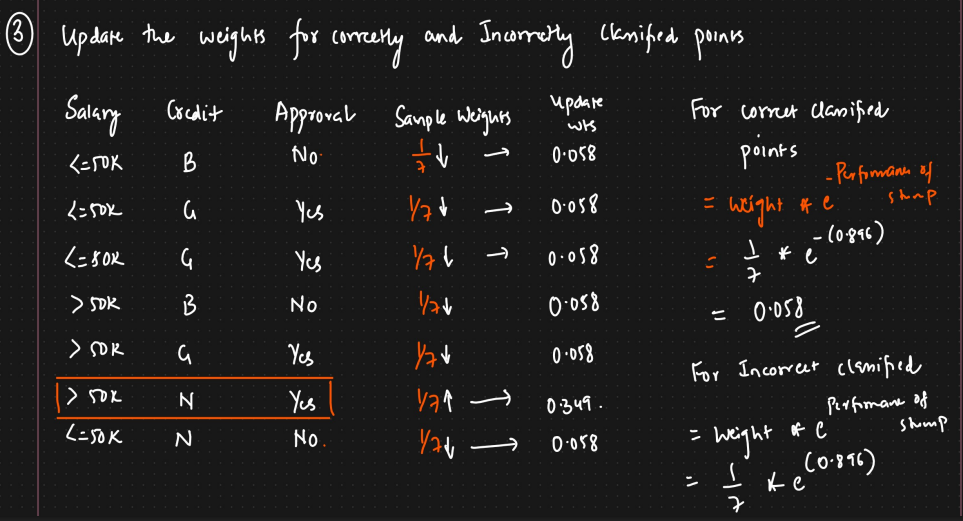 ③ Update the weights for correctly and Incorrectly Classified points
Salary Credit Approval Sample Weights Update wts
<=50K B No 1/7 ↓ → 0.058
<=50K G Yes 1/7 ↓ → 0.058
<=50K G Yes 1/7 ↓ → 0.058
>50K B No 1/7 ↓ 0.058
>50K G Yes 1/7 ↓ 0.058
>50K N Yes 1/7 ↑ → 0.349.
<=50K N No. 1/7 ↓ → 0.058
For correct classified
points
= Weight * e^-Performance of stump
= 1/7 * e^-(0.896)
= 0.058
For Incorrect classified
= Weight * e^Performance of stump
= 1/7 * e^(0.896)